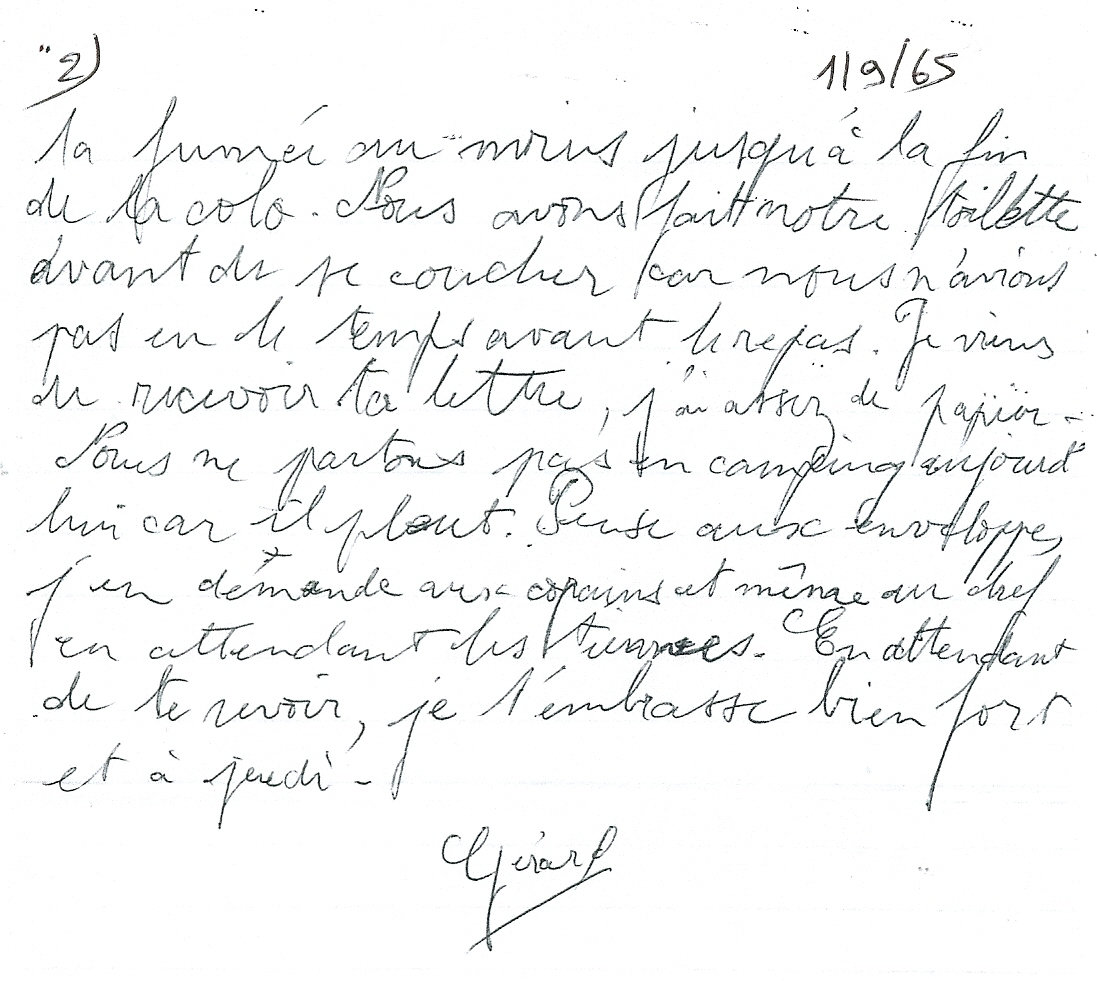 2) 1/9/65
la fumée au moins jusqu'à la fin
de la colo. Nous avons fait notre toilette
avant de se coucher car nous n'avions
pas eu le temps avant le repas. Je viens
de recevoir ta lettre, j'ai assez de papier.
Nous ne partons pas en camping aujourd'
hui car il pleut. Pense aux enveloppes,
j'en demande aux copains et même au chef
en attendant les tiennes. En attendant
de te revoir, je t'embrasse bien fort
et à jeudi -
Gérard